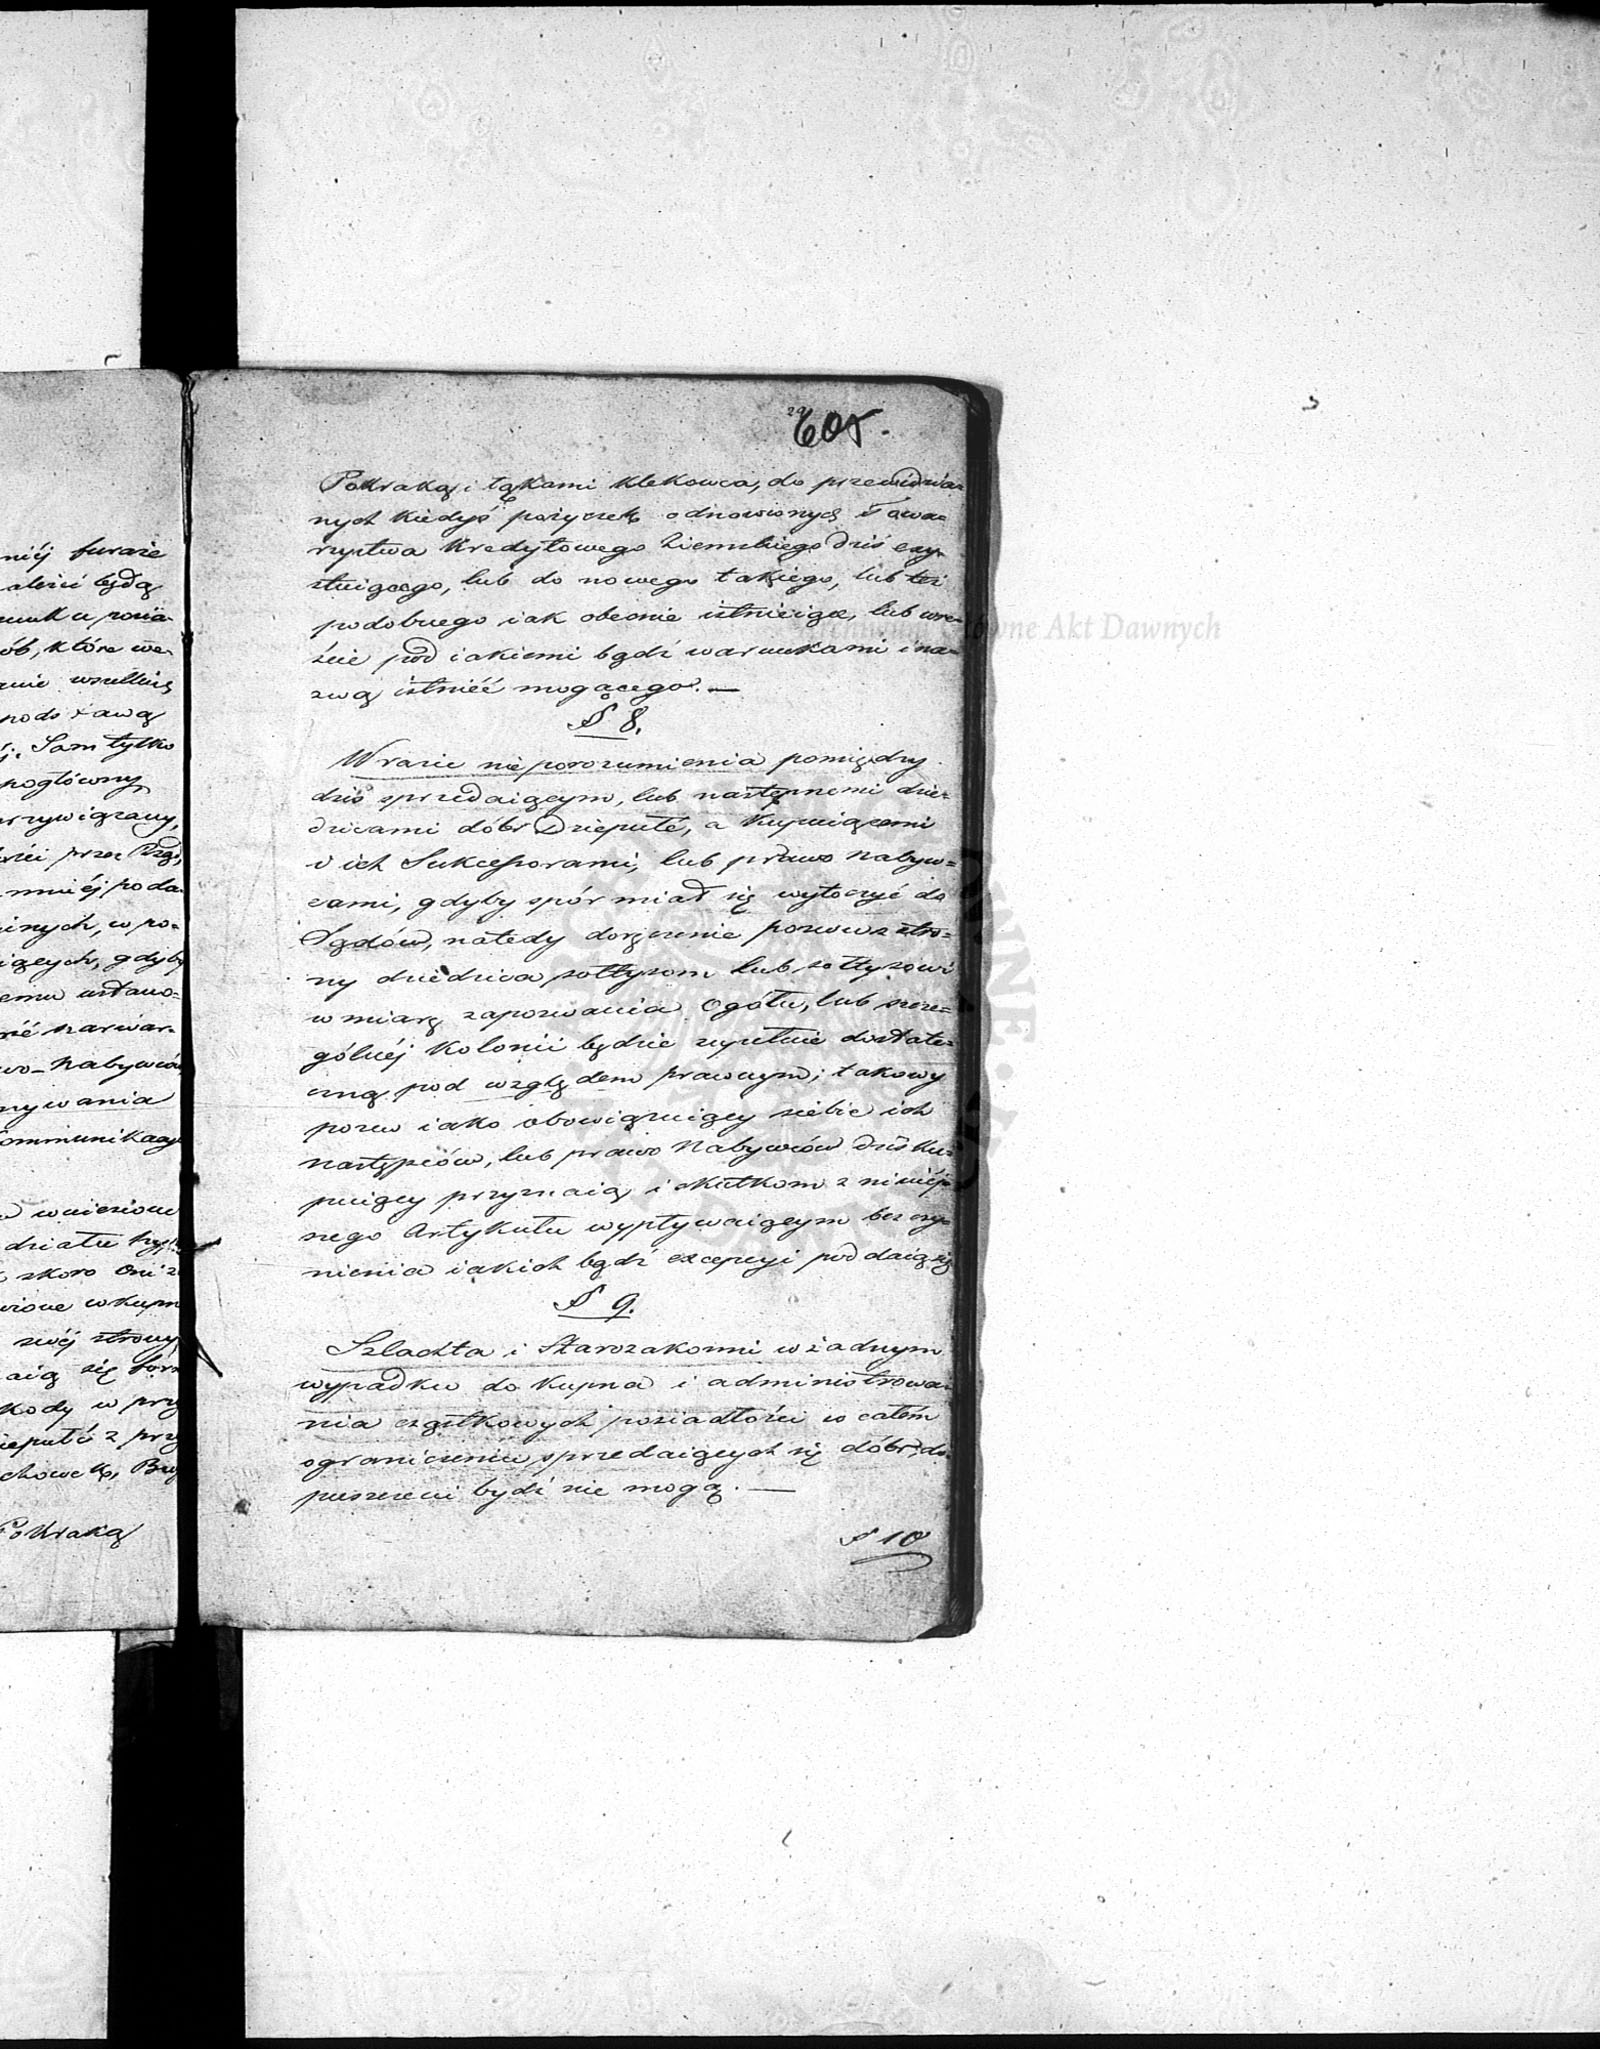 niéj furaże
ależeć będą
ób, które we-
anie wszelkie
podstawą
Sam tylko
pogłówny
przywiązany,
mniéj poda-
innych, w po-
iących, gdyby
emu ustano-
wo-nabywców
nywania
Communikacyi
wniesione
działu hyp
skoro Oni z
wione w kupn
swéj strony
aią się
kody w przy
ieputé z przy
Pokraką
605.
Pokraką i łąkami Klekowca, do przewidzia-
nych kiedyś pożyczek odnowionych Towa-
rzystwa Kredytowego Ziemskiego dziś exy-
stuiącego, lub do nowego takiego, lub też
podobnego iak obecnie istnieiące, lub wre-
ście pod iakiemi bądź warunkami i na-
zwą istnieć mogącego. —
§ 8.
W razie nieporozumienia pomiędzy
dziś sprzedaiącym, lub następnemi dzie-
dzicami dóbr Dzieputé, a kupuiącemi
i ich Sukcessorami, lub prawo nabyw-
cami, gdyby spór miał się wytoczyć do
Sądów, natedy doręczenie pozwu z stro-
ny dziedzica sołtysom lub sołtysowi
w miarę zapozwania Ogółu, lub szcze-
gólnéj Kolonii będzie zupełnie dostate-
czną pod względem prawnym; takowy
pozew iako obowiązuiący siebie ich
następców, lub prawo Nabywców dziś ku-
puiący przyznaią i skutkom z niniéj-
szego Artykułu wypływaiącym bez czy-
nienia iakich bądź excepcyi poddaią się
§ 9.
Szlachta i Starozakonni w żadnym
wypadku do kupna i administrowa-
nia cząstkowych posiadłości w całém
ograniczeniu sprzedaiących się dóbr, do-
puszczeni bydź nie mogą. —
§ 10
Archiwum Główne Akt Dawnych